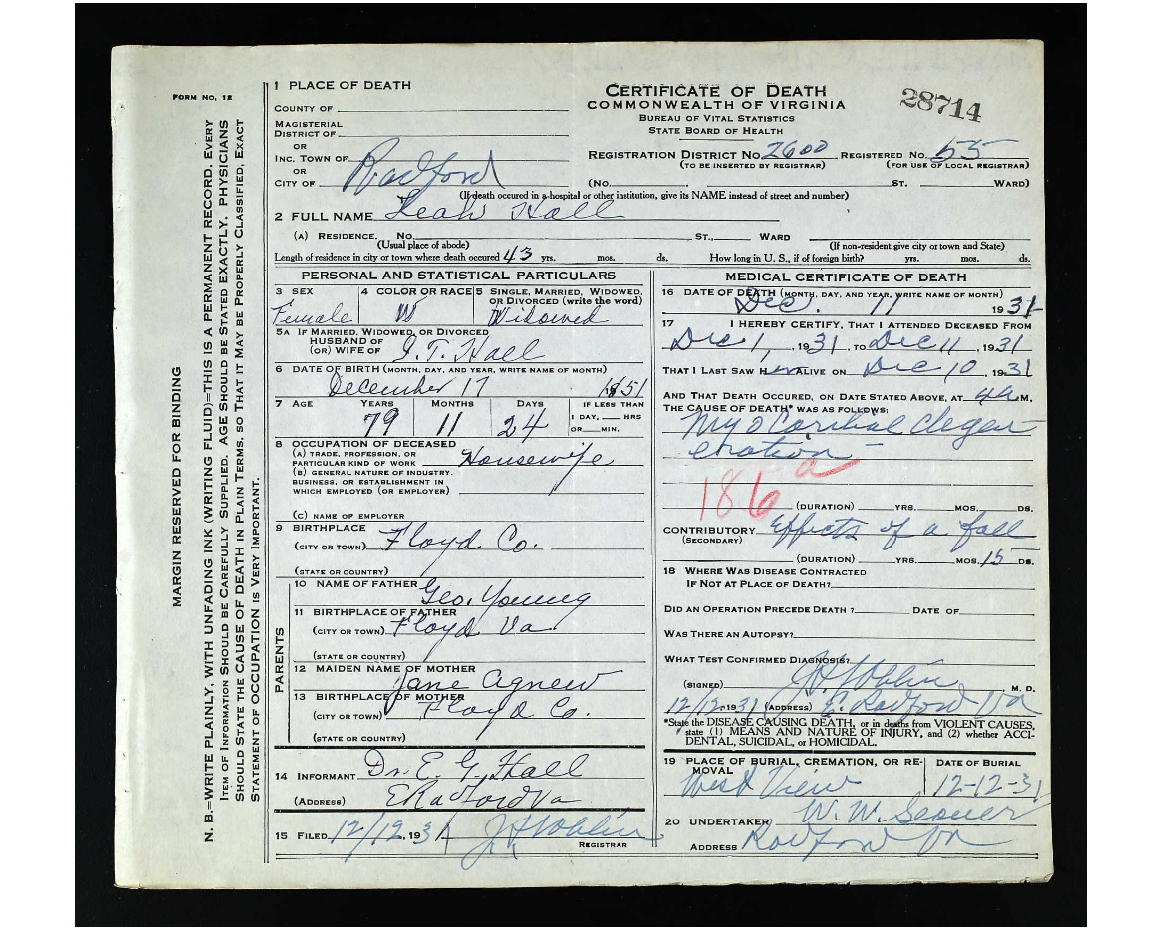 FORM NO. 12
MARGIN RESERVED FOR BINDING
N. B.=WRITE PLAINLY, WITH UNFADING INK (WRITING FLUID)=THIS IS A PERMANENT RECORD. EVERY
ITEM OF INFORMATION SHOULD BE CAREFULLY SUPPLIED. AGE SHOULD BE STATED EXACTLY. PHYSICIANS
SHOULD STATE THE CAUSE OF DEATH IN PLAIN TERMS, SO THAT IT MAY BE PROPERLY CLASSIFIED. EXACT
STATEMENT OF OCCUPATION IS VERY IMPORTANT.
1 PLACE OF DEATH
COUNTY OF
MAGISTERIAL
DISTRICT OF
OR
INC. TOWN OF
OR
CITY OF Radford
CERTIFICATE OF DEATH
COMMONWEALTH OF VIRGINIA
BUREAU OF VITAL STATISTICS
STATE BOARD OF HEALTH
28714
REGISTRATION DISTRICT NO. 2600 REGISTERED NO. 55
(TO BE INSERTED BY REGISTRAR) (FOR USE OF LOCAL REGISTRAR)
(NO. ST. WARD)
(If death occured in a hospital or other institution, give its NAME instead of street and number)
2 FULL NAME Leah Hall
(A) RESIDENCE. NO. ST., WARD
(Usual place of abode) (If non-resident give city or town and State)
Length of residence in city or town where death occured 43 yrs. mos. ds. How long in U. S., if of foreign birth? yrs. mos. ds.
PERSONAL AND STATISTICAL PARTICULARS
3 SEX Female
4 COLOR OR RACE W
5 SINGLE, MARRIED, WIDOWED,
OR DIVORCED (write the word)
Widowed
5A IF MARRIED, WIDOWED, OR DIVORCED
HUSBAND OF
(OR) WIFE OF J. T. Hall
6 DATE OF BIRTH (MONTH, DAY, AND YEAR, WRITE NAME OF MONTH)
December 17 1851
7 AGE YEARS MONTHS DAYS IF LESS THAN
1 DAY, HRS
OR MIN.
79 11 24
8 OCCUPATION OF DECEASED
(A) TRADE, PROFESSION, OR
PARTICULAR KIND OF WORK Housewife
(B) GENERAL NATURE OF INDUSTRY,
BUSINESS, OR ESTABLISHMENT IN
WHICH EMPLOYED (OR EMPLOYER)
(C) NAME OF EMPLOYER
9 BIRTHPLACE
(CITY OR TOWN) Floyd Co.
(STATE OR COUNTRY)
PARENTS
10 NAME OF FATHER Geo. Young
11 BIRTHPLACE OF FATHER
(CITY OR TOWN) Floyd Va
(STATE OR COUNTRY)
12 MAIDEN NAME OF MOTHER
Jane Agnew
13 BIRTHPLACE OF MOTHER
(CITY OR TOWN) Floyd Co.
(STATE OR COUNTRY)
14 INFORMANT Dr. E. G. Hall
(ADDRESS) E Radford Va
15 FILED 12/12, 1931
REGISTRAR
MEDICAL CERTIFICATE OF DEATH
16 DATE OF DEATH (MONTH, DAY, AND YEAR, WRITE NAME OF MONTH)
Dec. 11 1931
17 I HEREBY CERTIFY, THAT I ATTENDED DECEASED FROM
Dec 1, 1931, TO Dec 11, 1931
THAT I LAST SAW H ALIVE ON Dec 10, 1931
AND THAT DEATH OCCURED, ON DATE STATED ABOVE, AT 4a M.
THE CAUSE OF DEATH* WAS AS FOLLOWS:
Myocardial degen
eration
186 a
(DURATION) YRS. MOS. DS.
CONTRIBUTORY Effects of a fall
(SECONDARY)
(DURATION) YRS. MOS. 15 DS.
18 WHERE WAS DISEASE CONTRACTED
IF NOT AT PLACE OF DEATH?
DID AN OPERATION PRECEDE DEATH? DATE OF
WAS THERE AN AUTOPSY?
WHAT TEST CONFIRMED DIAGNOSIS?
(SIGNED) M. D.
12/12, 1931 (ADDRESS) E. Radford Va
*State the DISEASE CAUSING DEATH, or in deaths from VIOLENT CAUSES,
state (1) MEANS AND NATURE OF INJURY, and (2) whether ACCI-
DENTAL, SUICIDAL, or HOMICIDAL.
19 PLACE OF BURIAL, CREMATION, OR RE-
MOVAL
West View
DATE OF BURIAL
12-12-31
20 UNDERTAKER W. W.
ADDRESS Radford Va